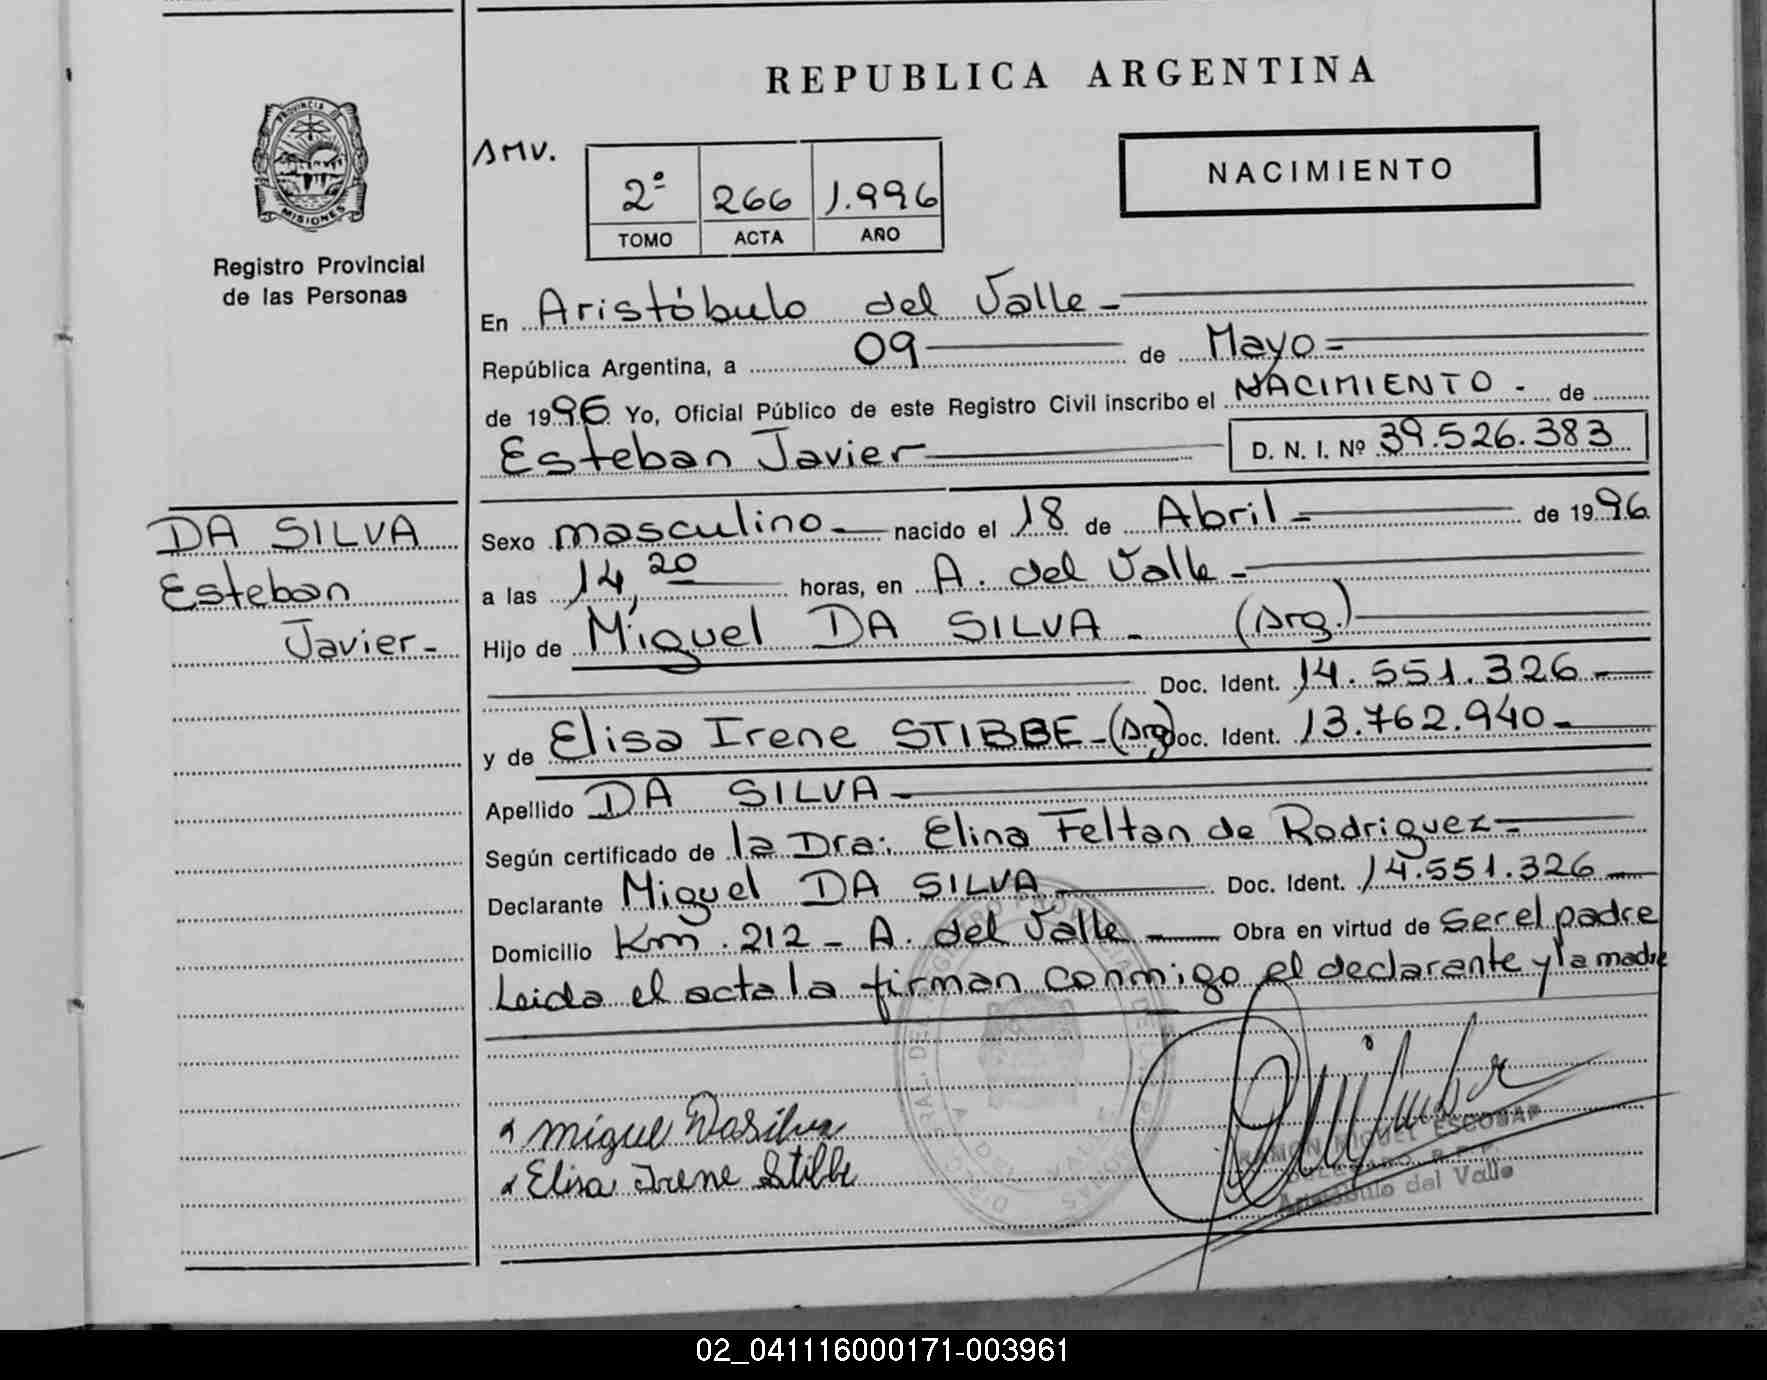 REPUBLICA ARGENTINA
PROVINCIA DE
MISIONES
Registro Provincial
de las Personas
AMV.
2º 266 1.996
TOMO ACTA AÑO
NACIMIENTO
En Aristóbulo del Valle -
República Argentina, a 09 de Mayo =
de 1996 Yo, Oficial Público de este Registro Civil inscribo el NACIMIENTO - de
Esteban Javier D. N. I. Nº 39.526.383
DA SILVA
Esteban
Javier -
Sexo masculino - nacido el 18 de Abril = de 1996
a las 14,20 horas, en A. del Valle -
Hijo de Miguel DA SILVA - (Arg.)
Doc. Ident. 14.551.326 -
y de Elisa Irene STIBBE - (Arg) Doc. Ident. 13.762.940 -
Apellido DA SILVA -
Según certificado de la Dra: Elina Feltan de Rodriguez =
Declarante Miguel DA SILVA Doc. Ident. 14.551.326 -
Domicilio Km. 212 - A. del Valle - Obra en virtud de Ser el padre
Leida el acta la firman conmigo el declarante y la madre
Miguel Dasilva
Elisa Irene Stibbe
RAMON MIGUEL ESCOBAR
Aristóbulo del Valle
02_041116000171-003961